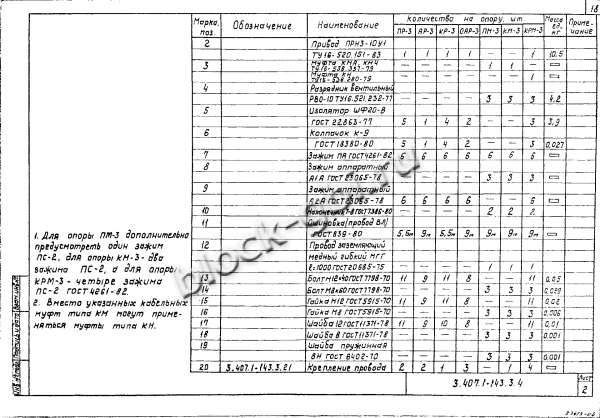 18
Марка, поз. Обозначение Наименование Количество на опору, шт. Масса ед. кг Примечание
ПР-3 ЯР-3 КР-3 ОАР-3 ПМ-3 КМ-3 КРМ-3
2 Привод ПРНЗ-10У1
ТУ16-520.151-83 1 1 1 1 — — 1 10.5
3 Муфта КНА, КНЧ
ТУ16-538.337-79 — — — — 1 1 —
Муфта КН
ТУ16-538.280-79 — — — — — — 1
4 Разрядник вентильный
РВО-10 ТУ16.521.232-77 — — — — 3 3 3 4,2
5 Изолятор ШФ20-В
ГОСТ 22863-77 5 1 4 2 — — 3 3,9
6 Колпачок К-9
ГОСТ 18380-80 5 1 4 2 — — 3 0,027
7 Зажим ПА ГОСТ 4261-82 6 6 6 6 6 6 6
8 Зажим аппаратный
А1А ГОСТ 23065-78 — — — — 3 3 3
9 Зажим аппаратный
А2А ГОСТ 23065-78 6 6 6 6 — — 6
10 ГОСТ 7386-80 — — — — 2 2 2
11 Ошиновка (провод ВЛ)
ГОСТ 839-80 5,5м 9м 5,5м 9м 9м 9м 9м
12 Провод заземляющий
медный гибкий МГГ
ℓ=1000 ГОСТ 20685-75 — — — — 1 1 1
13 Болт М12×40 ГОСТ 7798-70 11 9 11 8 — — 11 0,05
14 Болт М8×60 ГОСТ 7798-70 — — — — 3 3 3 0,029
15 Гайка М12 ГОСТ 5915-70 11 9 11 8 — — 11 0,02
16 Гайка М8 ГОСТ 5915-70 — — — — 3 3 3 0,006
17 Шайба 12 ГОСТ 11371-78 11 9 10 8 — — 11 0,01
18 Шайба 8 ГОСТ 11371-78 — — — — 3 3 3 0,001
19 Шайба пружинная
8Н ГОСТ 6402-70 — — — — 3 3 3 0,001
20 3.407.1-143.3.21 Крепление провода 2 2 1 3 — 1 4
1. Для опоры ПМ-3 дополнительно
предусмотреть один зажим
ПС-2, для опоры КМ-3 - два
зажима ПС-2, а для опоры
КРМ-3 - четыре зажима
ПС-2 ГОСТ 4261-82
2. Вместо указанных кабельных
муфт типа КМ могут приме-
няться муфты типа КН.
3.407.1-143.3.4
Лист
2
block-gbi.ru